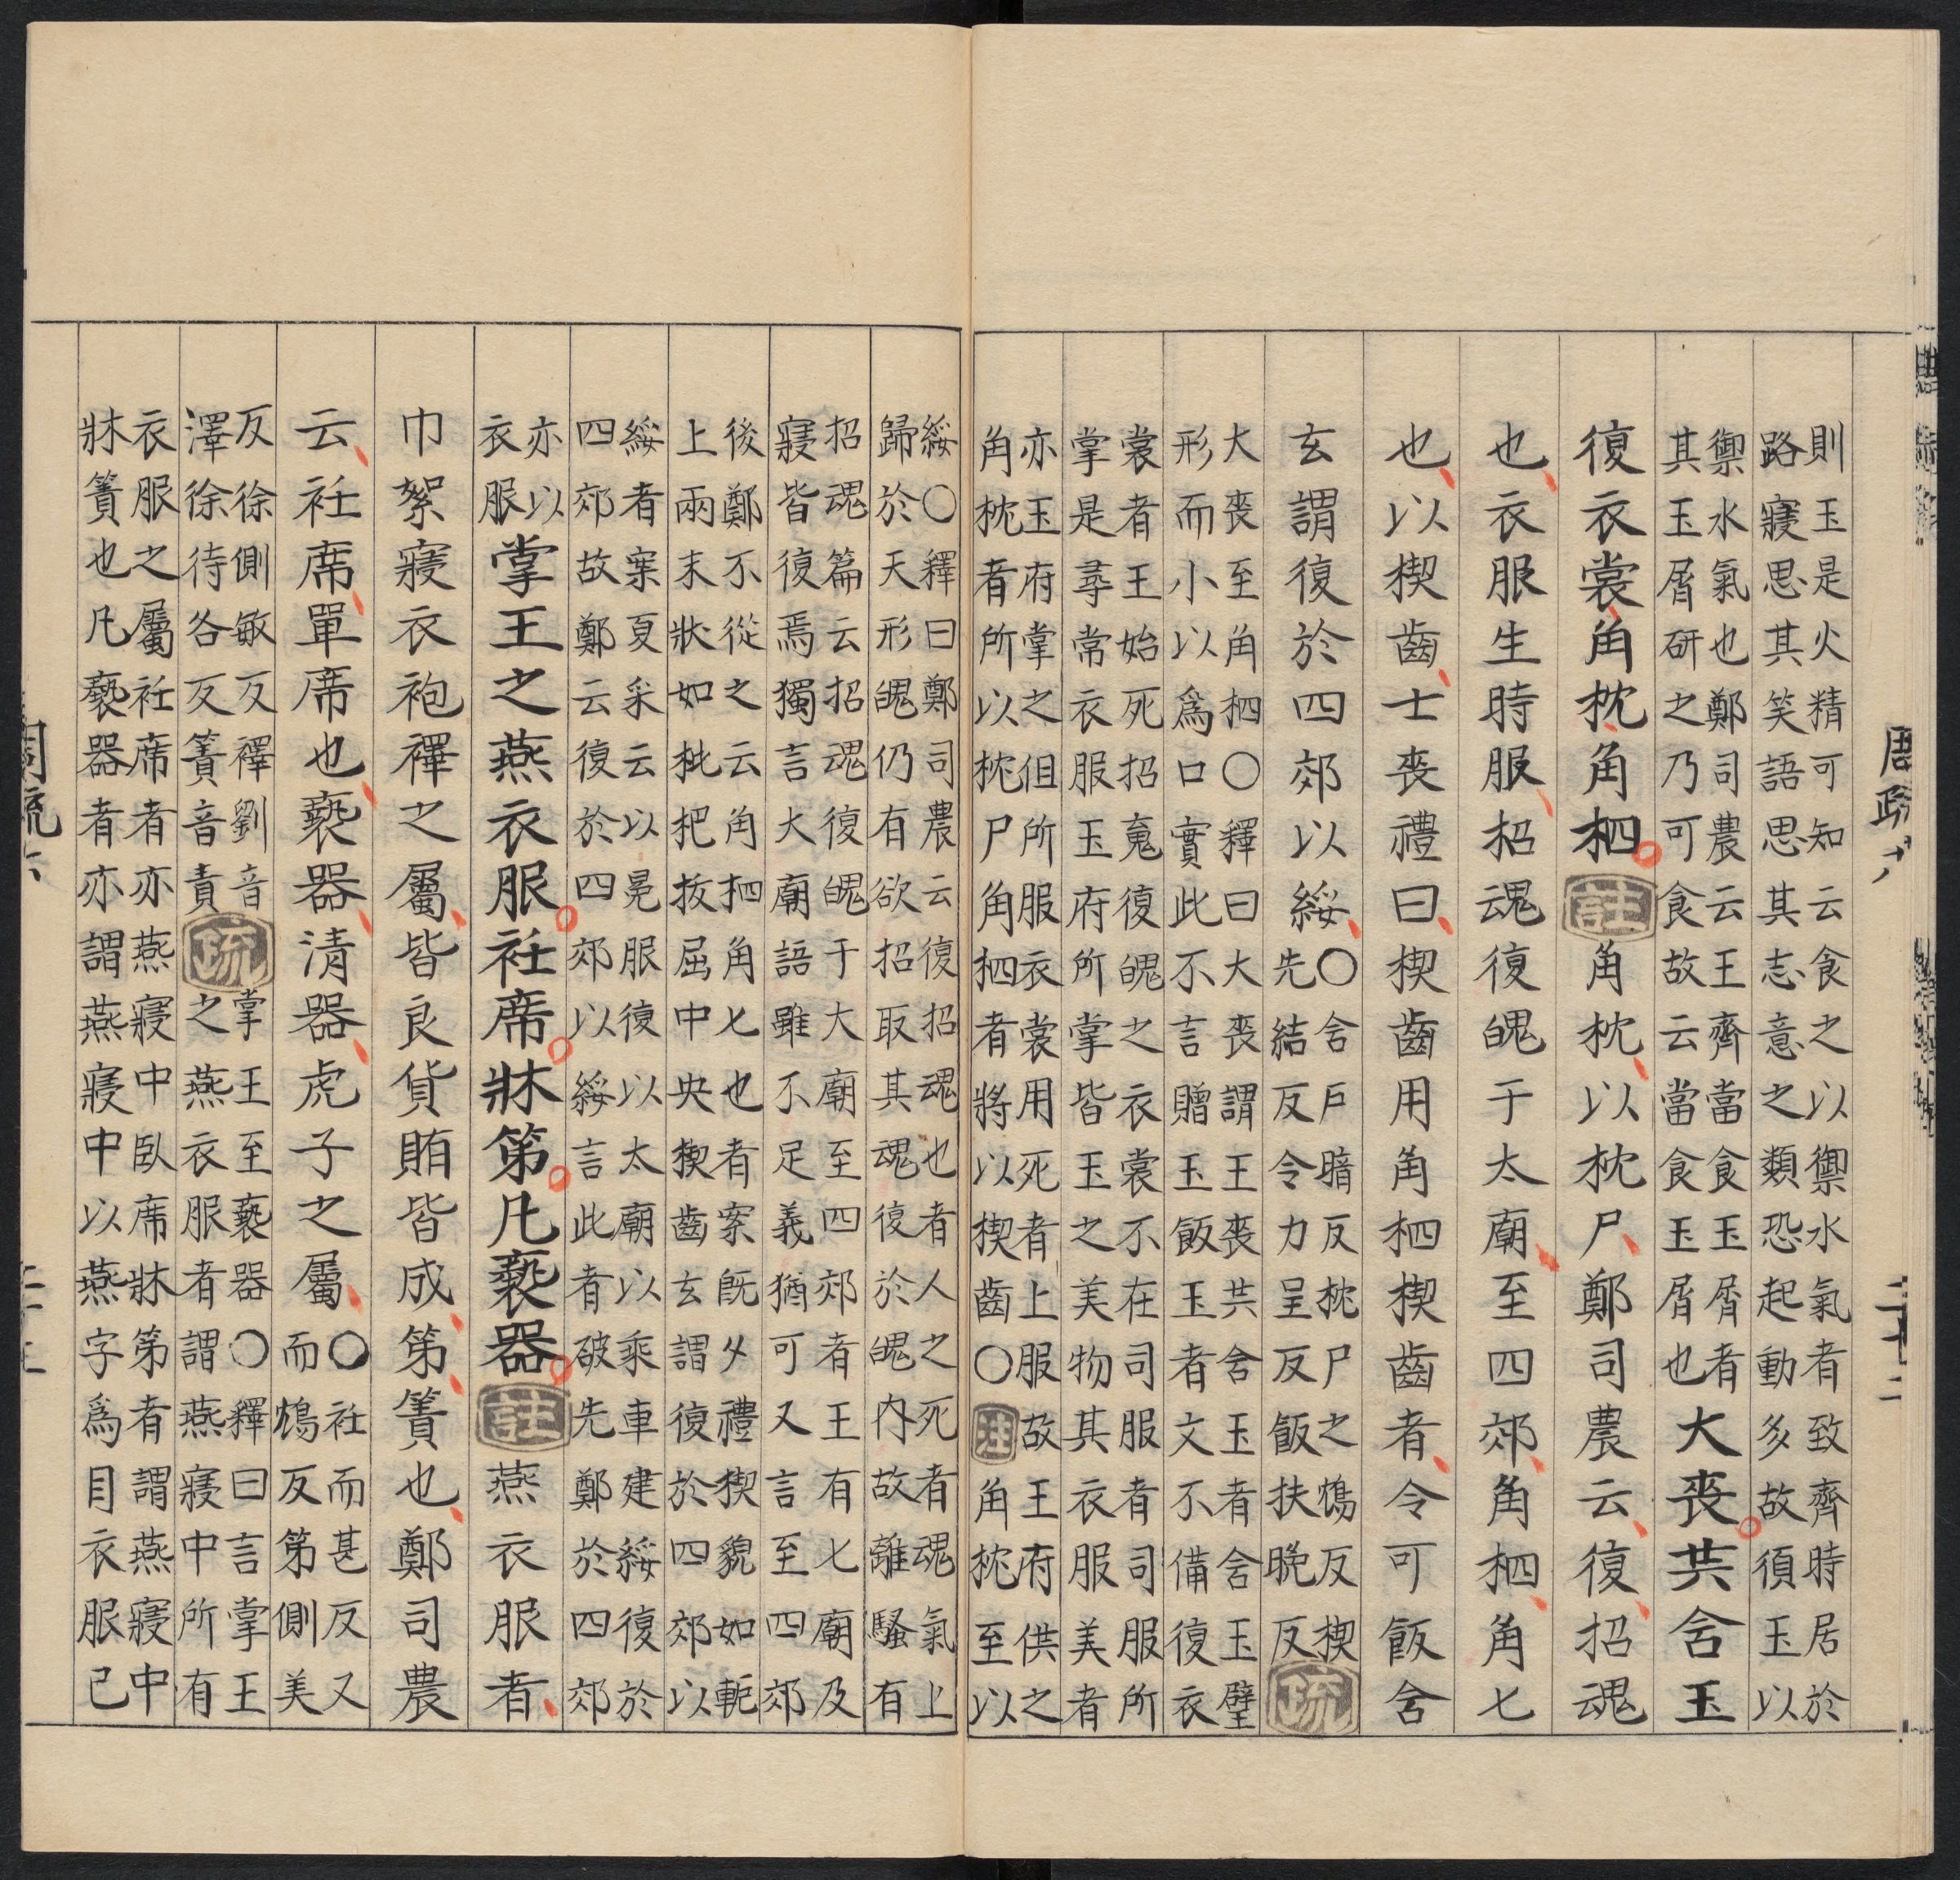 則玉是火精可知云食之以禦水氣者致齊時居於
路寢思其笑語思其志意之類恐起動多故須玉以
禦水氣也鄭司農云王齊當食玉屑者
其玉屑研之乃可食故云當食玉屑也
大喪共含玉
復衣裳角枕角柶註角枕以枕尸鄭司農云復招魂
也衣服生時服招魂復魄于太廟至四郊角柶角七
也以楔齒士喪禮曰楔齒用角柶楔齒者令可飯含
玄謂復於四郊以綏
○含戶暗反枕尸之鴆反楔
先結反令力呈反飯扶晚反疏
大喪至角柶○釋曰大喪謂王喪共含玉者含玉璧
形而小以爲口實此不言贈玉飯玉者文不備復衣
裳者王始死招䰟復魄之衣裳不在司服者司服所
掌是尋常衣服玉府所掌皆玉之美物其衣服美者
亦玉府掌之但所服衣裳用死者上服故王府供之
角枕者所以枕尸角柶者將以楔齒○註角枕至以
綏○釋曰鄭司農云復招魂也者人之死者魂氣上
歸於天形魄仍有欲招取其魂復於魄内故離騷有
招魂篇云招魂復魄于大廟至四郊者王有七廟及
寢皆復焉獨言大廟語雖不足義猶可又言至四郊
後鄭不從之云角柶角七也者案既夕禮楔貌如軛
上兩末狀如枇把拔屈中央楔齒玄謂復於四郊以
綏者案夏采云以冕服復以太廟以乘車建綏復於
四郊故鄭云復於四郊以綏言此者破先鄭於四郊
亦以
衣服
掌王之燕衣服衽席牀第凡褻器註燕衣服者
巾絮寢衣袍襗之屬皆良貨賄皆成第簀也鄭司農
云衽席單席也褻器清器虎子之屬
○衽而甚反又
而鴆反第側美
反徐側敏反襗劉音
澤徐待各反簀音責疏
掌王至褻器○釋曰言掌王
之燕衣服者謂燕寢中所有
衣服之屬衽席者亦燕寢中臥席牀第者謂燕寢中
牀簀也凡褻器者亦謂燕寢中以燕字爲目衣服已